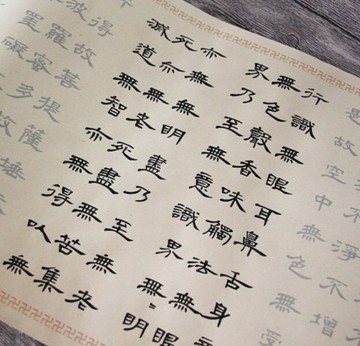 淨不增
是故空中無色無受
行識無眼耳鼻舌身意
無色聲香味觸法無眼
界乃至無意識界無〻明
亦無無明盡乃至無老
死亦無老死盡無苦集
滅道無智亦無得以無
得故菩提薩埵
波羅蜜多